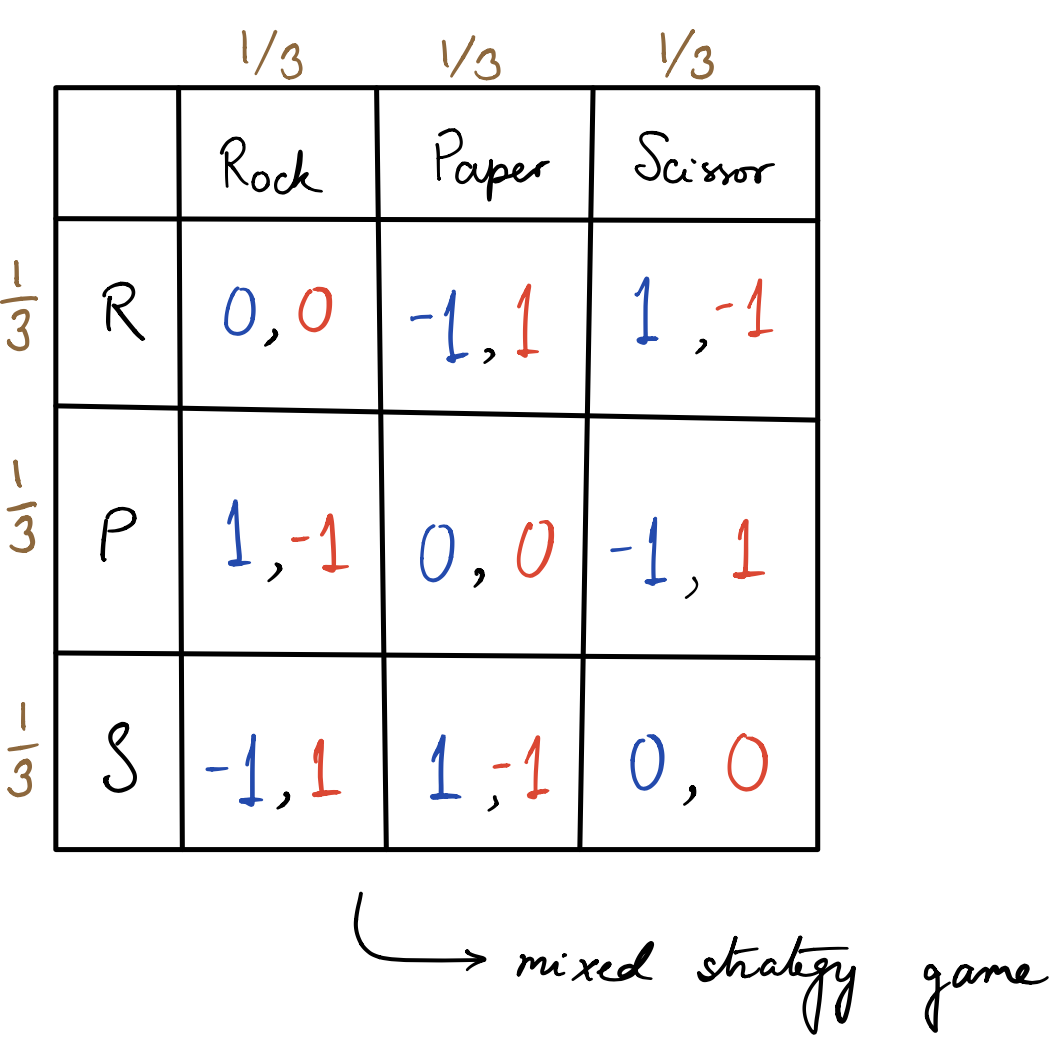 1/3 1/3 1/3
Rock Paper Scissor
1/3 R 0, 0 -1, 1 1, -1
1/3 P 1, -1 0, 0 -1, 1
1/3 S -1, 1 1, -1 0, 0
mixed strategy game